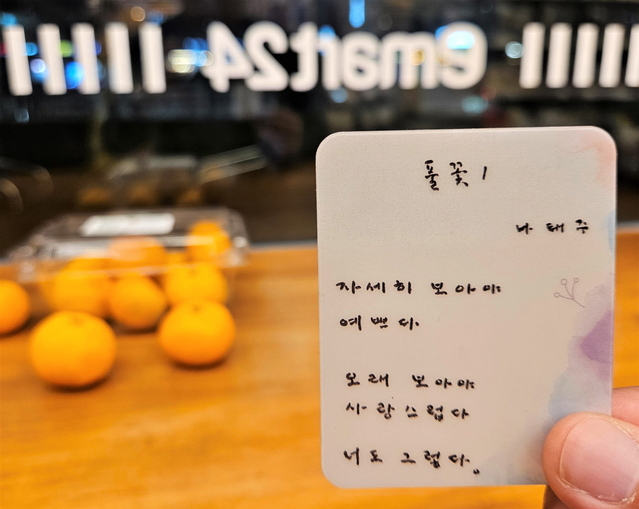 emart24
풀꽃 1
나태주
자세히 보아야
예쁘다.
오래 보아야
사랑스럽다
너도 그렇다。